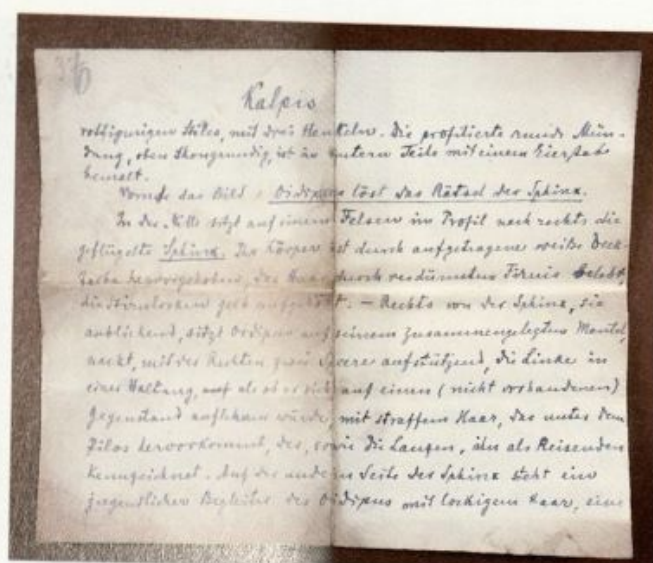 376
Kalpis
rotfigurigen Stiles, mit drei Henkeln. Die profilierte runde Mün-
dung, oben thongrundig, ist im untern Teile mit einem Eierstabe
bemalt.
Vorne das Bild: Oidipus löst das Rätsel der Sphinx.
In der Mitte sitzt auf einem Felsen im Profil nach rechts die
geflügelte Sphinx. Ihr Körper ist durch aufgetragene weiße Deck-
farbe hervorgehoben, das Haar durch verdünnten Firnis belebt,
die Stirnlocken gelb aufgehöht. — Rechts von der Sphinx, sie
anblickend, sitzt Oidipus auf seinem zusammengelegten Mantel,
nackt, mit der Rechten zwei Speere aufstützend, die Linke in
einer Haltung, als ob er sich auf einen (nicht vorhandenen)
Gegenstand auflehnen würde, mit straffem Haar, das unter dem
Pilos hervorkommt, der, sowie die Lanzen, ihn als Reisenden
kennzeichnet. Auf der andern Seite der Sphinx steht ein
jugendlicher Begleiter des Oidipus mit lockigem Haar, eine